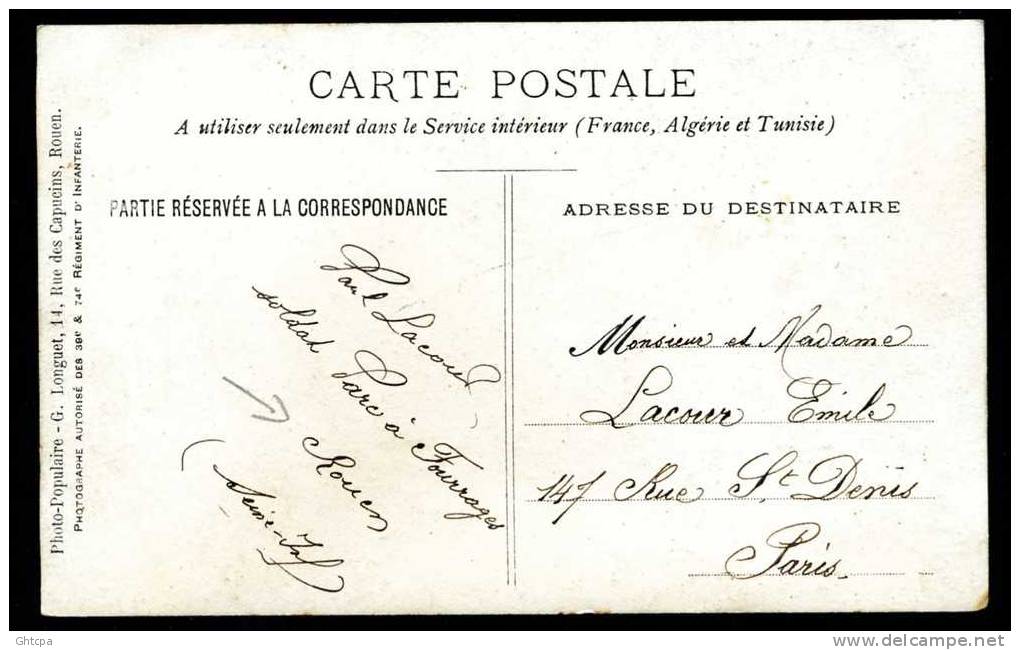 CARTE POSTALE
A utiliser seulement dans le Service intérieur (France, Algérie et Tunisie)
PARTIE RÉSERVÉE A LA CORRESPONDANCE
Paul Lacour
soldat Parc à Fourrages
Rouen
(Seine-Inf)
ADRESSE DU DESTINATAIRE
Monsieur et Madame
Lacour Emile
147 Rue St Denis
Paris
Photo-Populaire - G. Longuet, 14, Rue des Capucins, Rouen.
PHOTOGRAPHE AUTORISÉ DES 39e & 74e RÉGIMENT D'INFANTERIE.
Ghtcpa
delcampe.net